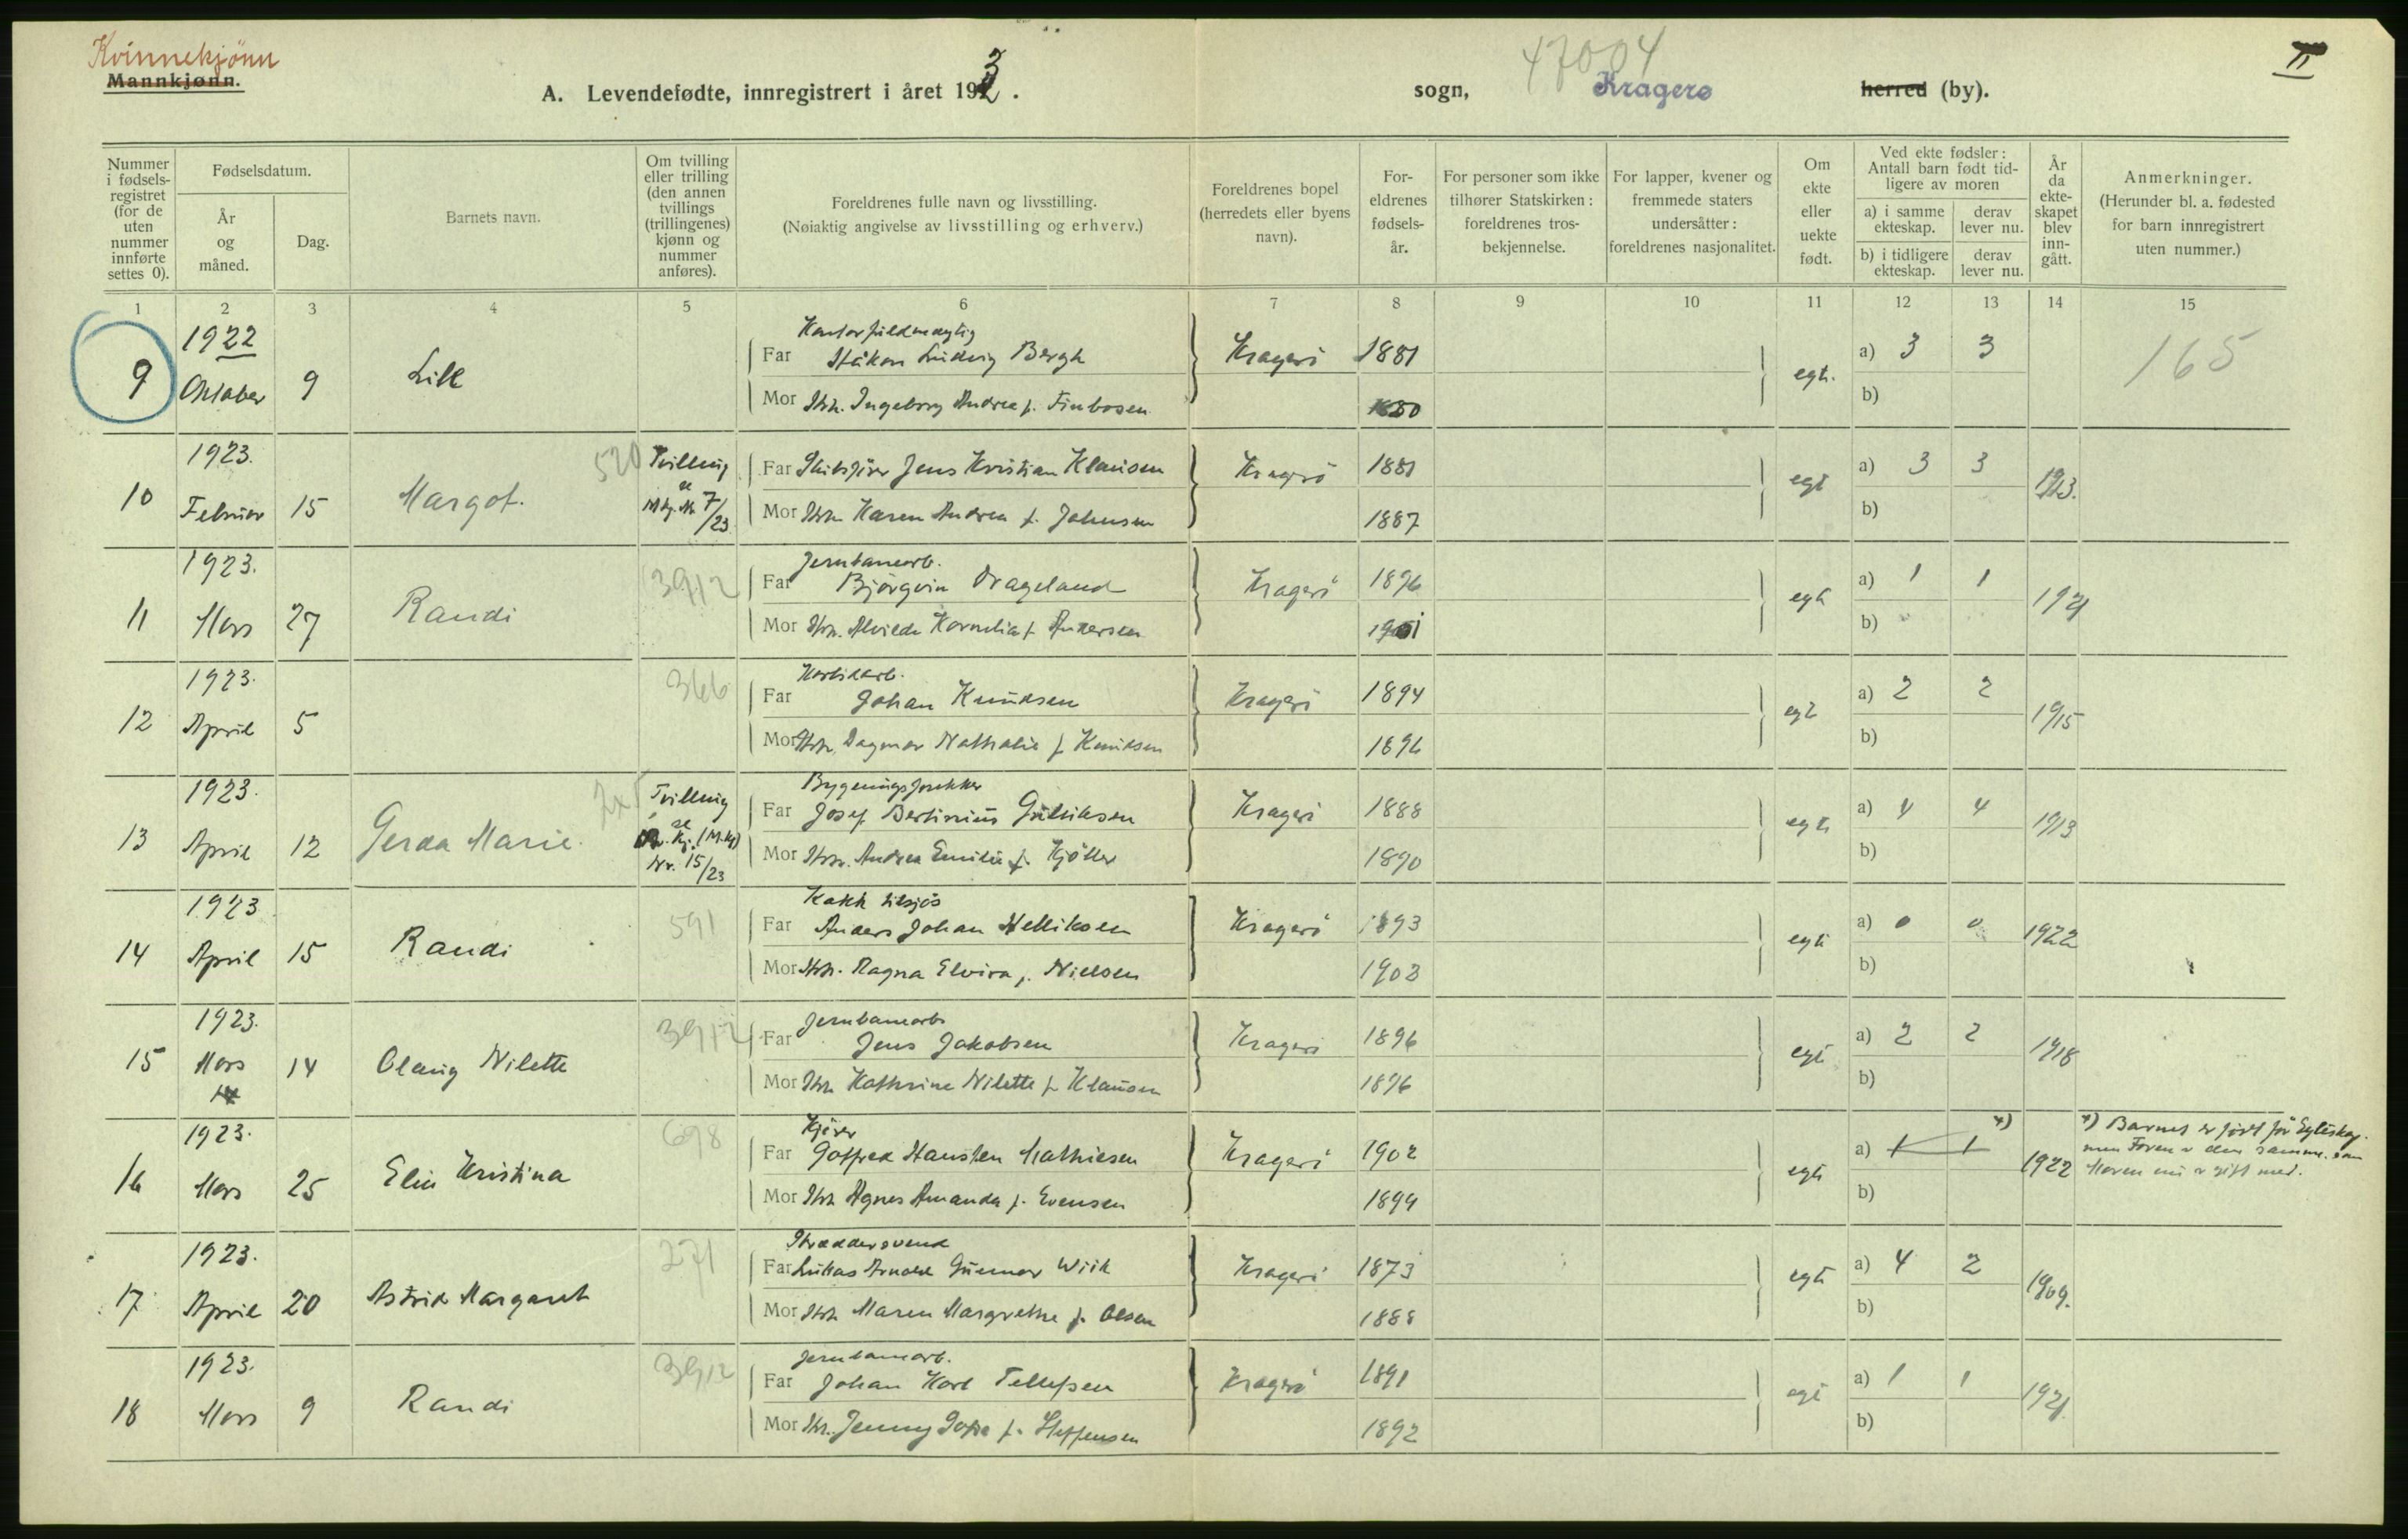 Kvinnekjönn
Mannkjønn.
A. Levendefødte, innregistrert i året 1923.
sogn,
47004
Kragerø
herred (by).
II
Nummer i fødselsregistret (for de uten nummer innførte settes 0).
Fødselsdatum.
År og måned.
Dag.
Barnets navn.
Om tvilling eller trilling (den annen tvillings (trillingenes) kjønn og nummer anføres).
Foreldrenes fulle navn og livsstilling.
(Nøiaktig angivelse av livsstilling og erhverv.)
Foreldrenes bopel (herredets eller byens navn).
Foreldrenes fødselsår.
For personer som ikke tilhører Statskirken: foreldrenes trosbekjennelse.
For lapper, kvener og fremmede staters undersåtter: foreldrenes nasjonalitet.
Om ekte eller uekte født.
Ved ekte fødsler: Antall barn født tidligere av moren
a) i samme ekteskap.
derav lever nu.
b) i tidligere ekteskap.
derav lever nu.
År da ekteskapet blev inngått.
Anmerkninger.
(Herunder bl. a. fødested for barn innregistrert uten nummer.)
1 2 3 4 5 6 7 8 9 10 11 12 13 14 15
9 1922 Oktober 9 Lill
Kontorfuldmægtig
Far Håkon Ludvig Bergh Kragerö 1881 egt. a) 3 3 165
Mor Hstr. Ingeborg Andrea f. Finbosen 1880 b)
10 1923. Februar 15 Margot. 520 Tvilling se M.kj. Nr 7/23
Far Skibsfører Jens Kristian Klausen Kragerö 1881 egt a) 3 3 1913.
Mor Hstr. Karen Andrea f. Johnsen 1887 b)
11 1923. Mars 27 Randi 3912
Jernbanearb.
Far Björgvin Drageland Kragerö 1896 egt a) 1 1 1921
Mor Hstr. Alvilde Kornelia f. Andersen 1901 b)
12 1923. April 5 366
Karbidarb.
Far Johan Knudsen Kragerö 1894 egt a) 2 2 1915
Mor Hstr. Dagmar Nathalie f. Knudsen 1896 b)
13 1923. April 12 Gerda Marie. Tvilling se M.kj. (M.kj) Nr. 15/23
Bygningssnekker
Far Josef Bertinius Gulliksen Kragerö 1888 egt a) 4 4 1913
Mor Hstr. Andrea Emilie f. Kjöller 1890 b)
14 1923 April 15 Randi 591
Kokk tilsjös
Far Anders Johan Helliksen Kragerö 1893 egt a) 0 0 1922
Mor Hstr. Ragna Elvira f. Nielsen 1903 b)
15 1923. Mars 14 Olaug Nilette 3912
Jernbanearb.
Far Jens Jakobsen Kragerö 1896 egt a) 2 2 1918
Mor Hstr. Kathrine Nilette f. Klausen 1896 b)
16 1923. Mars 25 Elin Kristina 698
Kjører
Far Gotfred Hansten Mathiesen Kragerö 1902 egt a) 1 1 *) 1922
Mor Hstr. Agnes Amanda f. Evensen 1899 b)
*) Barnet er født før Egteskap.
men Faren er den samme som
Moren nu er gift med.
17 1923. April 20 Astrid Margaret 271
Skreddersvend
Far Lukas Arnold Gunnar Wiik Kragerö 1873 egt a) 4 2 1909.
Mor Hstr. Maren Margrethe f. Olsen 1888 b)
18 1923. Mars 9 Randi 3912
Jernbanearb.
Far Johan Karl Tellefsen Kragerö 1891 egt a) 1 1 1921
Mor Hstr. Jenny Sofie f. Steffensen 1892 b)